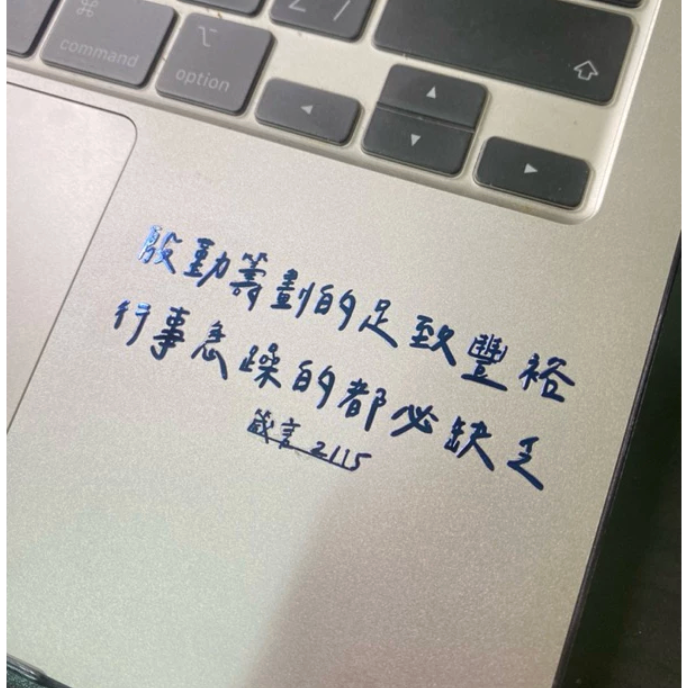 ⌘
command
⌥
option
Z /
◀
▲
▼
▶
殷勤籌劃的足致豐裕
行事急躁的都必缺乏
箴言 2115